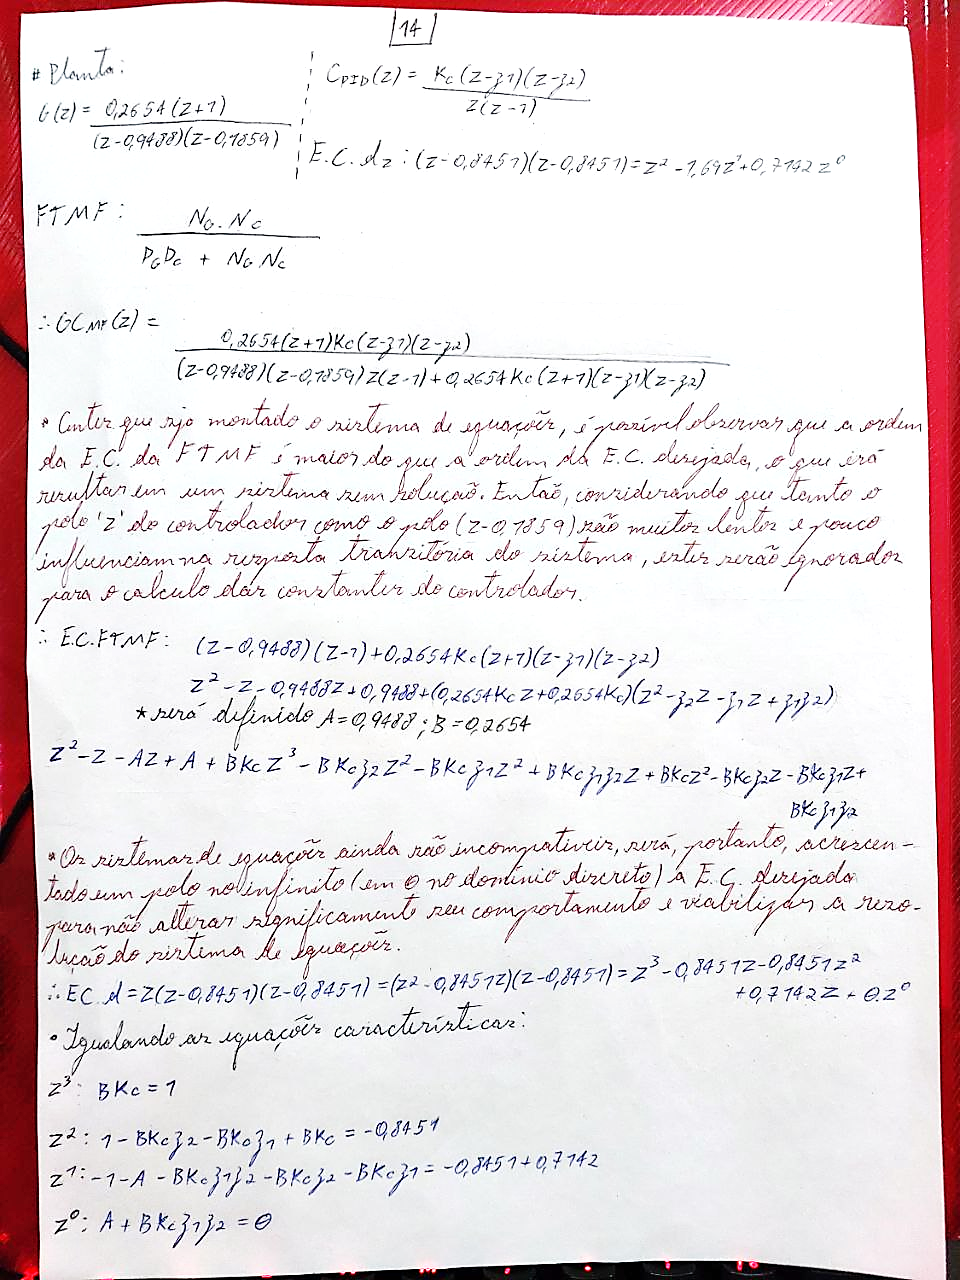 14
# Planta:
G(z) = 0,2654(z+1) / (z-0,9488)(z-0,1859)
C_PID(z) = Kc(z-z1)(z-z2) / z(z-1)
E.C. dz: (z-0,8451)(z-0,8451) = z² -1,69z¹+0,7142z⁰
FTMF: NG.NC / DGDC + NG.NC
∴ GC_MF(z) = 0,2654(z+1)Kc(z-z1)(z-z2) / (z-0,9488)(z-0,1859)z(z-1)+0,2654Kc(z+1)(z-z1)(z-z2)
* Antes que seja montado o sistema de equações, é possível observar que a ordem
da E.C. da FTMF é maior do que a ordem da E.C. desejada, o que irá
resultar em um sistema sem solução. Então, considerando que tanto o
polo 'z' do controlador como o polo (z-0,1859) são muitos lentos e pouco
influenciam na resposta transitória do sistema, estes serão ignorados
para o calculo das constantes do controlador.
∴ E.C.FTMF: (z-0,9488)(z-1)+0,2654Kc(z+1)(z-z1)(z-z2)
z²-z-0,9488z+0,9488+(0,2654Kcz+0,2654Kc)(z²-z2z-z1z+z1z2)
* será definido A=0,9488; B=0,2654
z²-z-Az+A+BKcz³-BKcz2z²-BKcz1z²+BKcz1z2z+BKcz²-BKcz2z-BKcz1z+
BKcz1z2
* Os sistemas de equações ainda são incompatíveis, será, portanto, acrescen-
tado um polo no infinito (em 0 no domínio discreto) a E.C. desejada
para não alterar significamente seu comportamento e viabilizar a reso-
lução do sistema de equações.
∴ EC.d=z(z-0,8451)(z-0,8451)=(z²-0,8451z)(z-0,8451)=z³-0,8451z-0,8451z²
+0,7142z+0.z⁰
• Igualando as equações características:
z³: BKc=1
z²: 1-BKcz2-BKcz1+BKc=-0,8451
z¹: -1-A-BKcz1z2-BKcz2-BKcz1=-0,8451+0,7142
z⁰: A+BKcz1z2=0